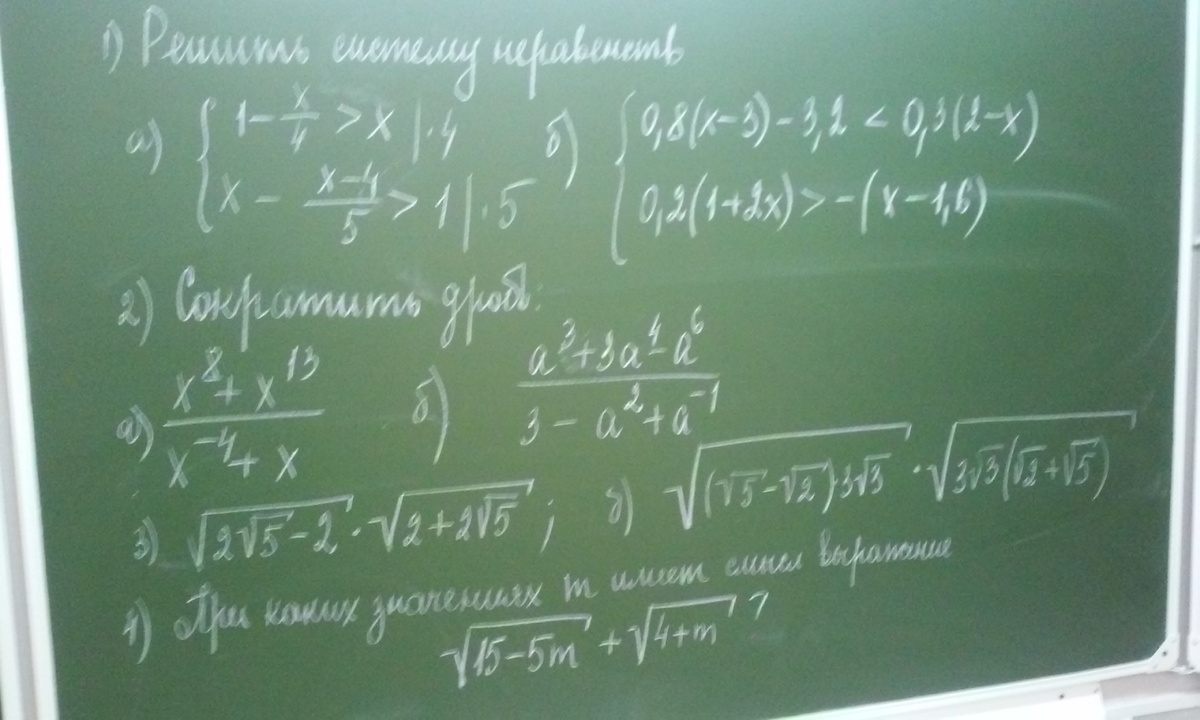 1) Решить систему неравенств
а) { 1 - x/4 > x | · 4
x - (x-4)/5 > 1 | · 5
б) { 0,8(x-3) - 3,2 < 0,3(2-x)
0,2(1+2x) > -(x-1,6)
2) Сократить дробь:
а) (x⁸ + x¹³)/(x⁻⁴ + x) б) (a³ + 3a⁴ - a⁶)/(3 - a² + a⁻¹)
3) √(2√5 - 2) · √(2 + 2√5) ; б) √((√5 - √2) · 3√3) · √(3√3(√2 + √5))
4) При каких значениях m имеет смысл выражение
√(15 - 5m) + √(4 + m) ?